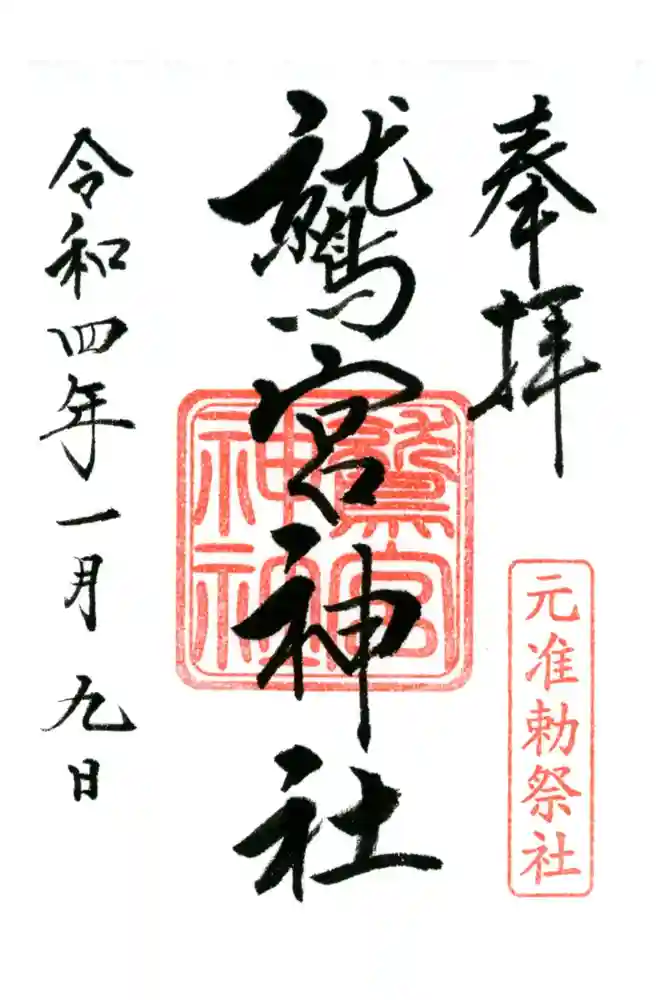 奉拝
元准勅祭社
鷲宮神社
鷲宮
神社
令和四年一月九日